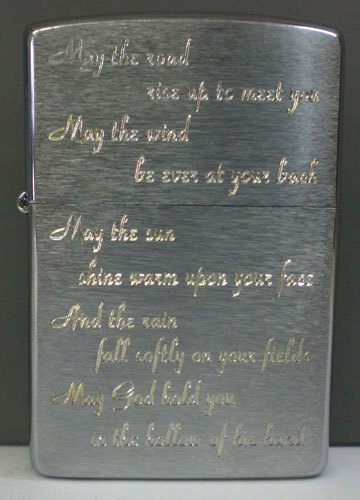 May the road
rise up to meet you
May the wind
be ever at your back
May the sun
shine warm upon your face
And the rain
fall softly on your fields
May God hold you
in the hollow of his hand